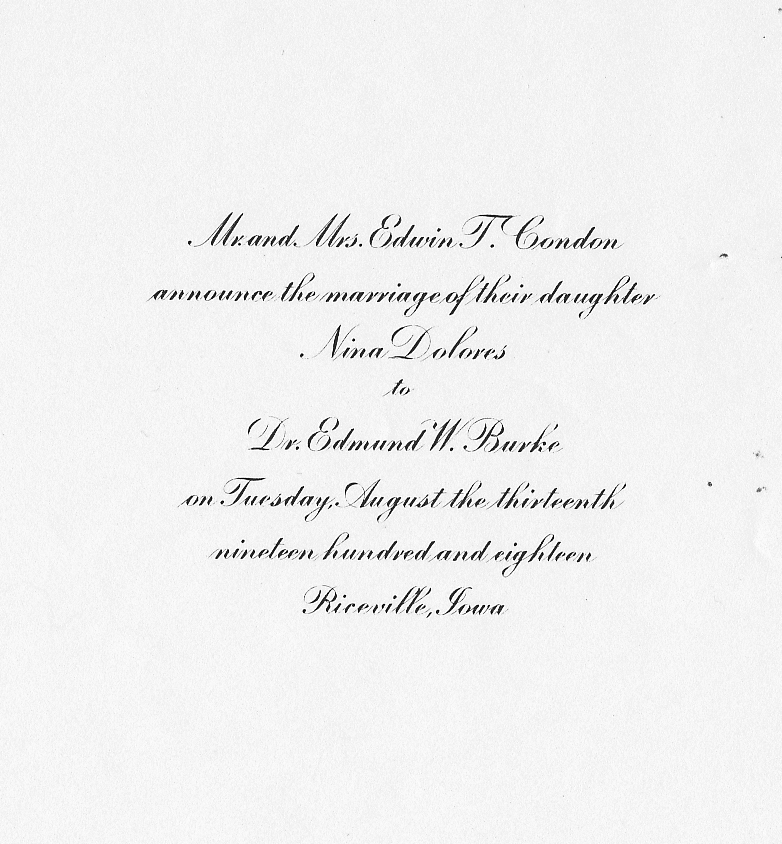 Mr. and Mrs. Edwin T. Condon
announce the marriage of their daughter
Nina Dolores
to
Dr. Edmund W. Burke
on Tuesday, August the thirteenth
nineteen hundred and eighteen
Riceville, Iowa